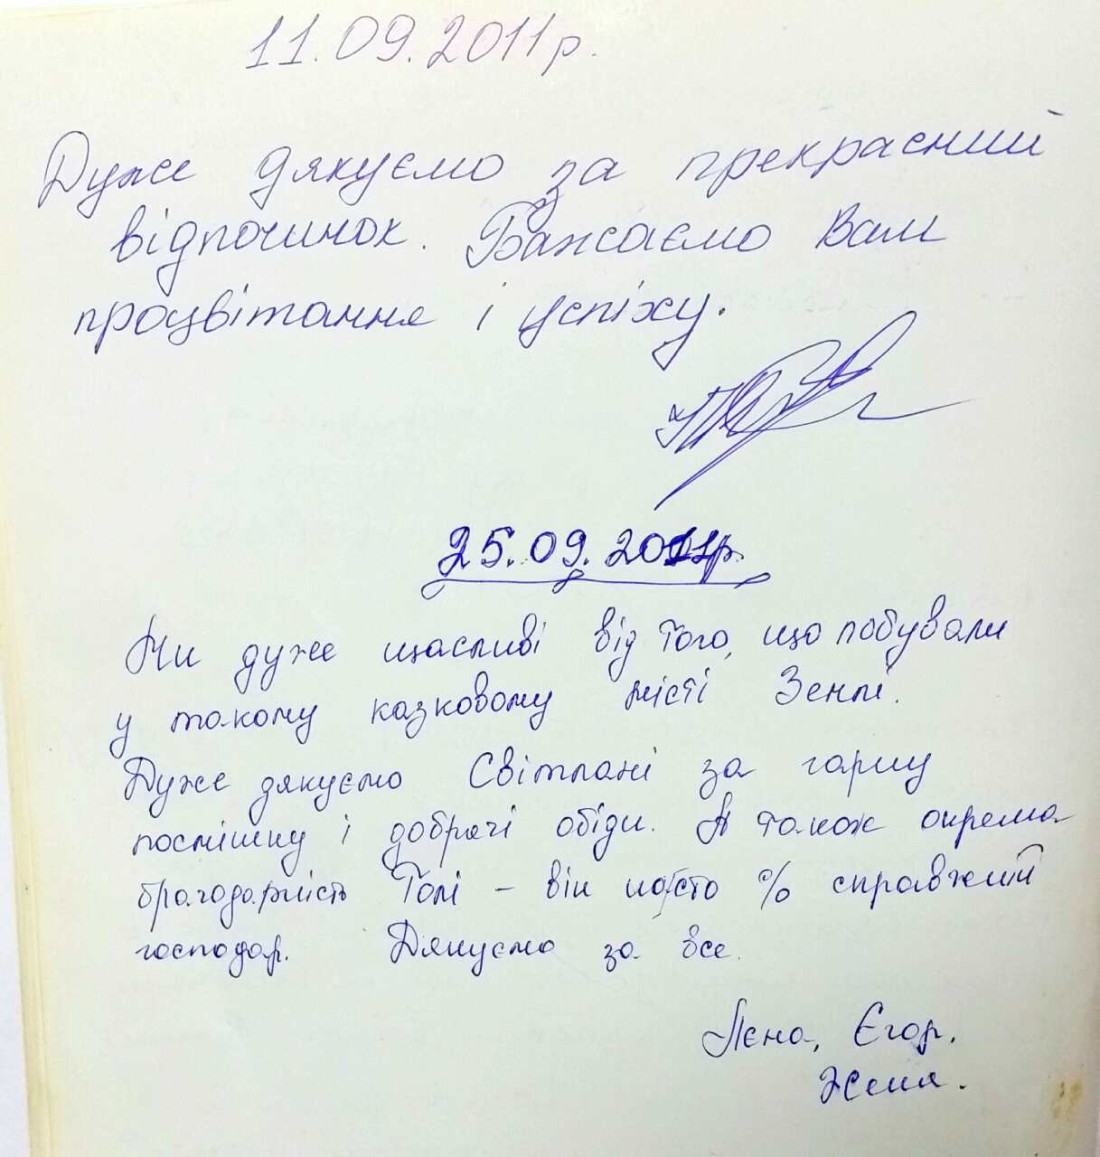 11.09.2011р.
Дуже дякуємо за прекрасний
відпочинок. Бажаємо Вам
процвітання і успіху.
25.09.2011р.
Ми дуже щасливі від того, що побували
у такому казковому місті Землі.
Дуже дякуємо Світлані за гарну
посмішку і добрячі обіди. А також окрема
благодарність Толі – він на сто % справжній
господар. Дякуємо за все.
Лєна, Єгор,
Женя.